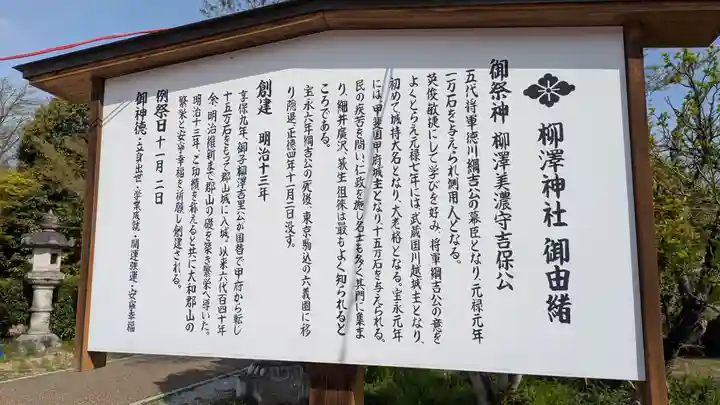 柳澤神社 御由緒
御祭神 柳澤美濃守吉保公
五代将軍徳川綱吉公の幕臣となり、元禄元年
一万石を与えられ側用人となる。
英俊敏捷にして学びを好み、将軍綱吉公の意を
よくとらえ元禄七年には、武蔵国川越城主となり、
初めて城持大名となり、大老格となる。宝永元年
には甲斐国甲府城主となり十五万石を与えられる。
民の疾苦を問い、仁政を施し名士も多く其門に集ま
り、細井廣沢、荻生徂徠は最もよく知られると
ころである。
宝永六年綱吉公の死後、東京駒込の六義園に移
り隠退、正徳四年十一月二日没す。
創建 明治十三年
享保九年、御子柳澤吉里公が国替で甲府から転じ
十五万石をもって郡山城に入城、以来六代百四十年
余、明治維新まで郡山の礎を築き繁栄へ導いた。
明治十三年、ご功績を称えると共に大和郡山の
繁栄と安寧幸福を祈願し創建される。
例祭日 十一月 二日
御神徳・立身出世・学業成就・開運強運・安寧幸福